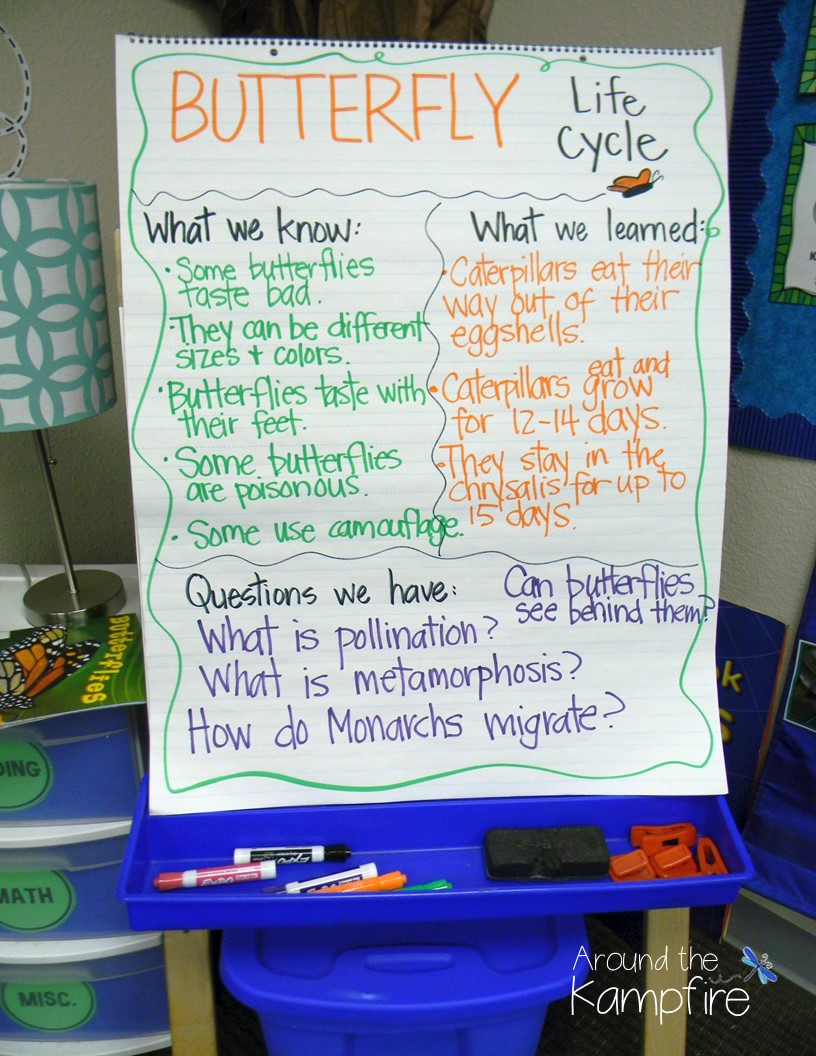 BUTTERFLY
Life
Cycle
What we know:
· Some butterflies
taste bad.
· They can be different
sizes + colors.
· Butterflies taste with
their feet.
· Some butterflies
are poisonous.
· Some use camouflage.
What we learned:
· Caterpillars eat their
way out of their
eggshells.
· Caterpillars eat and grow
for 12-14 days.
· They stay in the
chrysalis for up to
15 days.
Questions we have:
Can butterflies
see behind them?
What is pollination?
What is metamorphosis?
How do Monarchs migrate?
Butterflies
DING
MATH
MISC.
EXPO
EXPO
EXPO
Around the
Kampfire